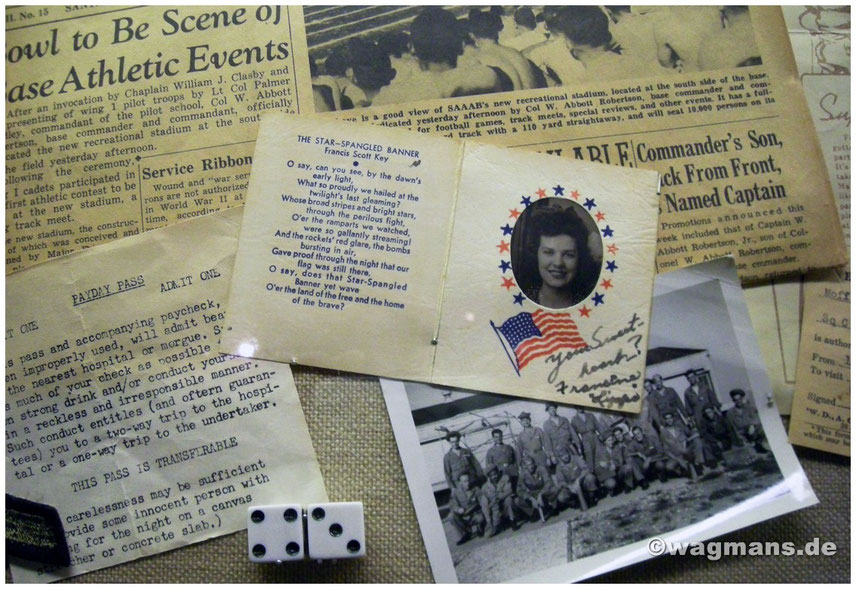 H. No. 15
Bowl to Be Scene of
Base Athletic Events
After an invocation by
Chaplain William J. Clasby and
presenting of wing 1 pilot troops by Lt Col Palmer
ley, commandant of the pilot school, Col W. Abbott
ertson, base commander and commandant, officially
cated the new recreational stadium at the south side
the field yesterday afternoon.
ollowing the ceremony,
I cadets participated in
first athletic contest to be
at the new stadium, a
track meet.
he new stadium, the construc-
of which was conceived and
by Major
Service Ribbon
Wound and "war serv
rons are not authorized
in World War II at
time, according
is a good view of SAAAB's new recreational stadium, located at the south side of the base.
dedicated yesterday afternoon by Col W. Abbott Robertson, base commander and com-
for football games, track meets, special reviews, and other events. It has a full-
rd track with a 110 yard straightaway, and will seat 10,000 persons on its
ABLE
Commander's Son,
ck From Front,
s Named Captain
Promotions announced this
week included that of Captain W.
Abbott Robertson, Jr., son of Col-
onel W. Abbott Robertson,
base commander.
THE STAR-SPANGLED BANNER
Francis Scott Key
O say, can you see, by the dawn's
early light,
What so proudly we hailed at the
twilight's last gleaming?
Whose broad stripes and bright stars,
through the perilous fight,
O'er the ramparts we watched,
were so gallantly streaming!
And the rockets' red glare, the bombs
bursting in air,
Gave proof through the night that our
flag was still there.
O say, does that Star-Spangled
Banner yet wave
O'er the land of the free and the home
of the brave?
Your Sweet-
heart?
Francine
IT ONE PAYDAY PASS ADMIT ONE
s pass and accompanying paycheck,
en improperly used, will admit bear
the nearest hospital or morgue.
s much of your check as possible
n strong drink and/or conduct yourself
in a reckless and irresponsible manner.
Such conduct entitles (and oftern guaran-
tees) you to a two-way trip to the hospi-
tal or a one-way trip to the undertaker.
THIS PASS IS TRANSFERABLE
carelessness may be sufficient
ovide some innocent person with
ng for the night on a canvas
etcher or concrete slab.)
Sq
is author
From
To visit
Signed
©wagmans.de